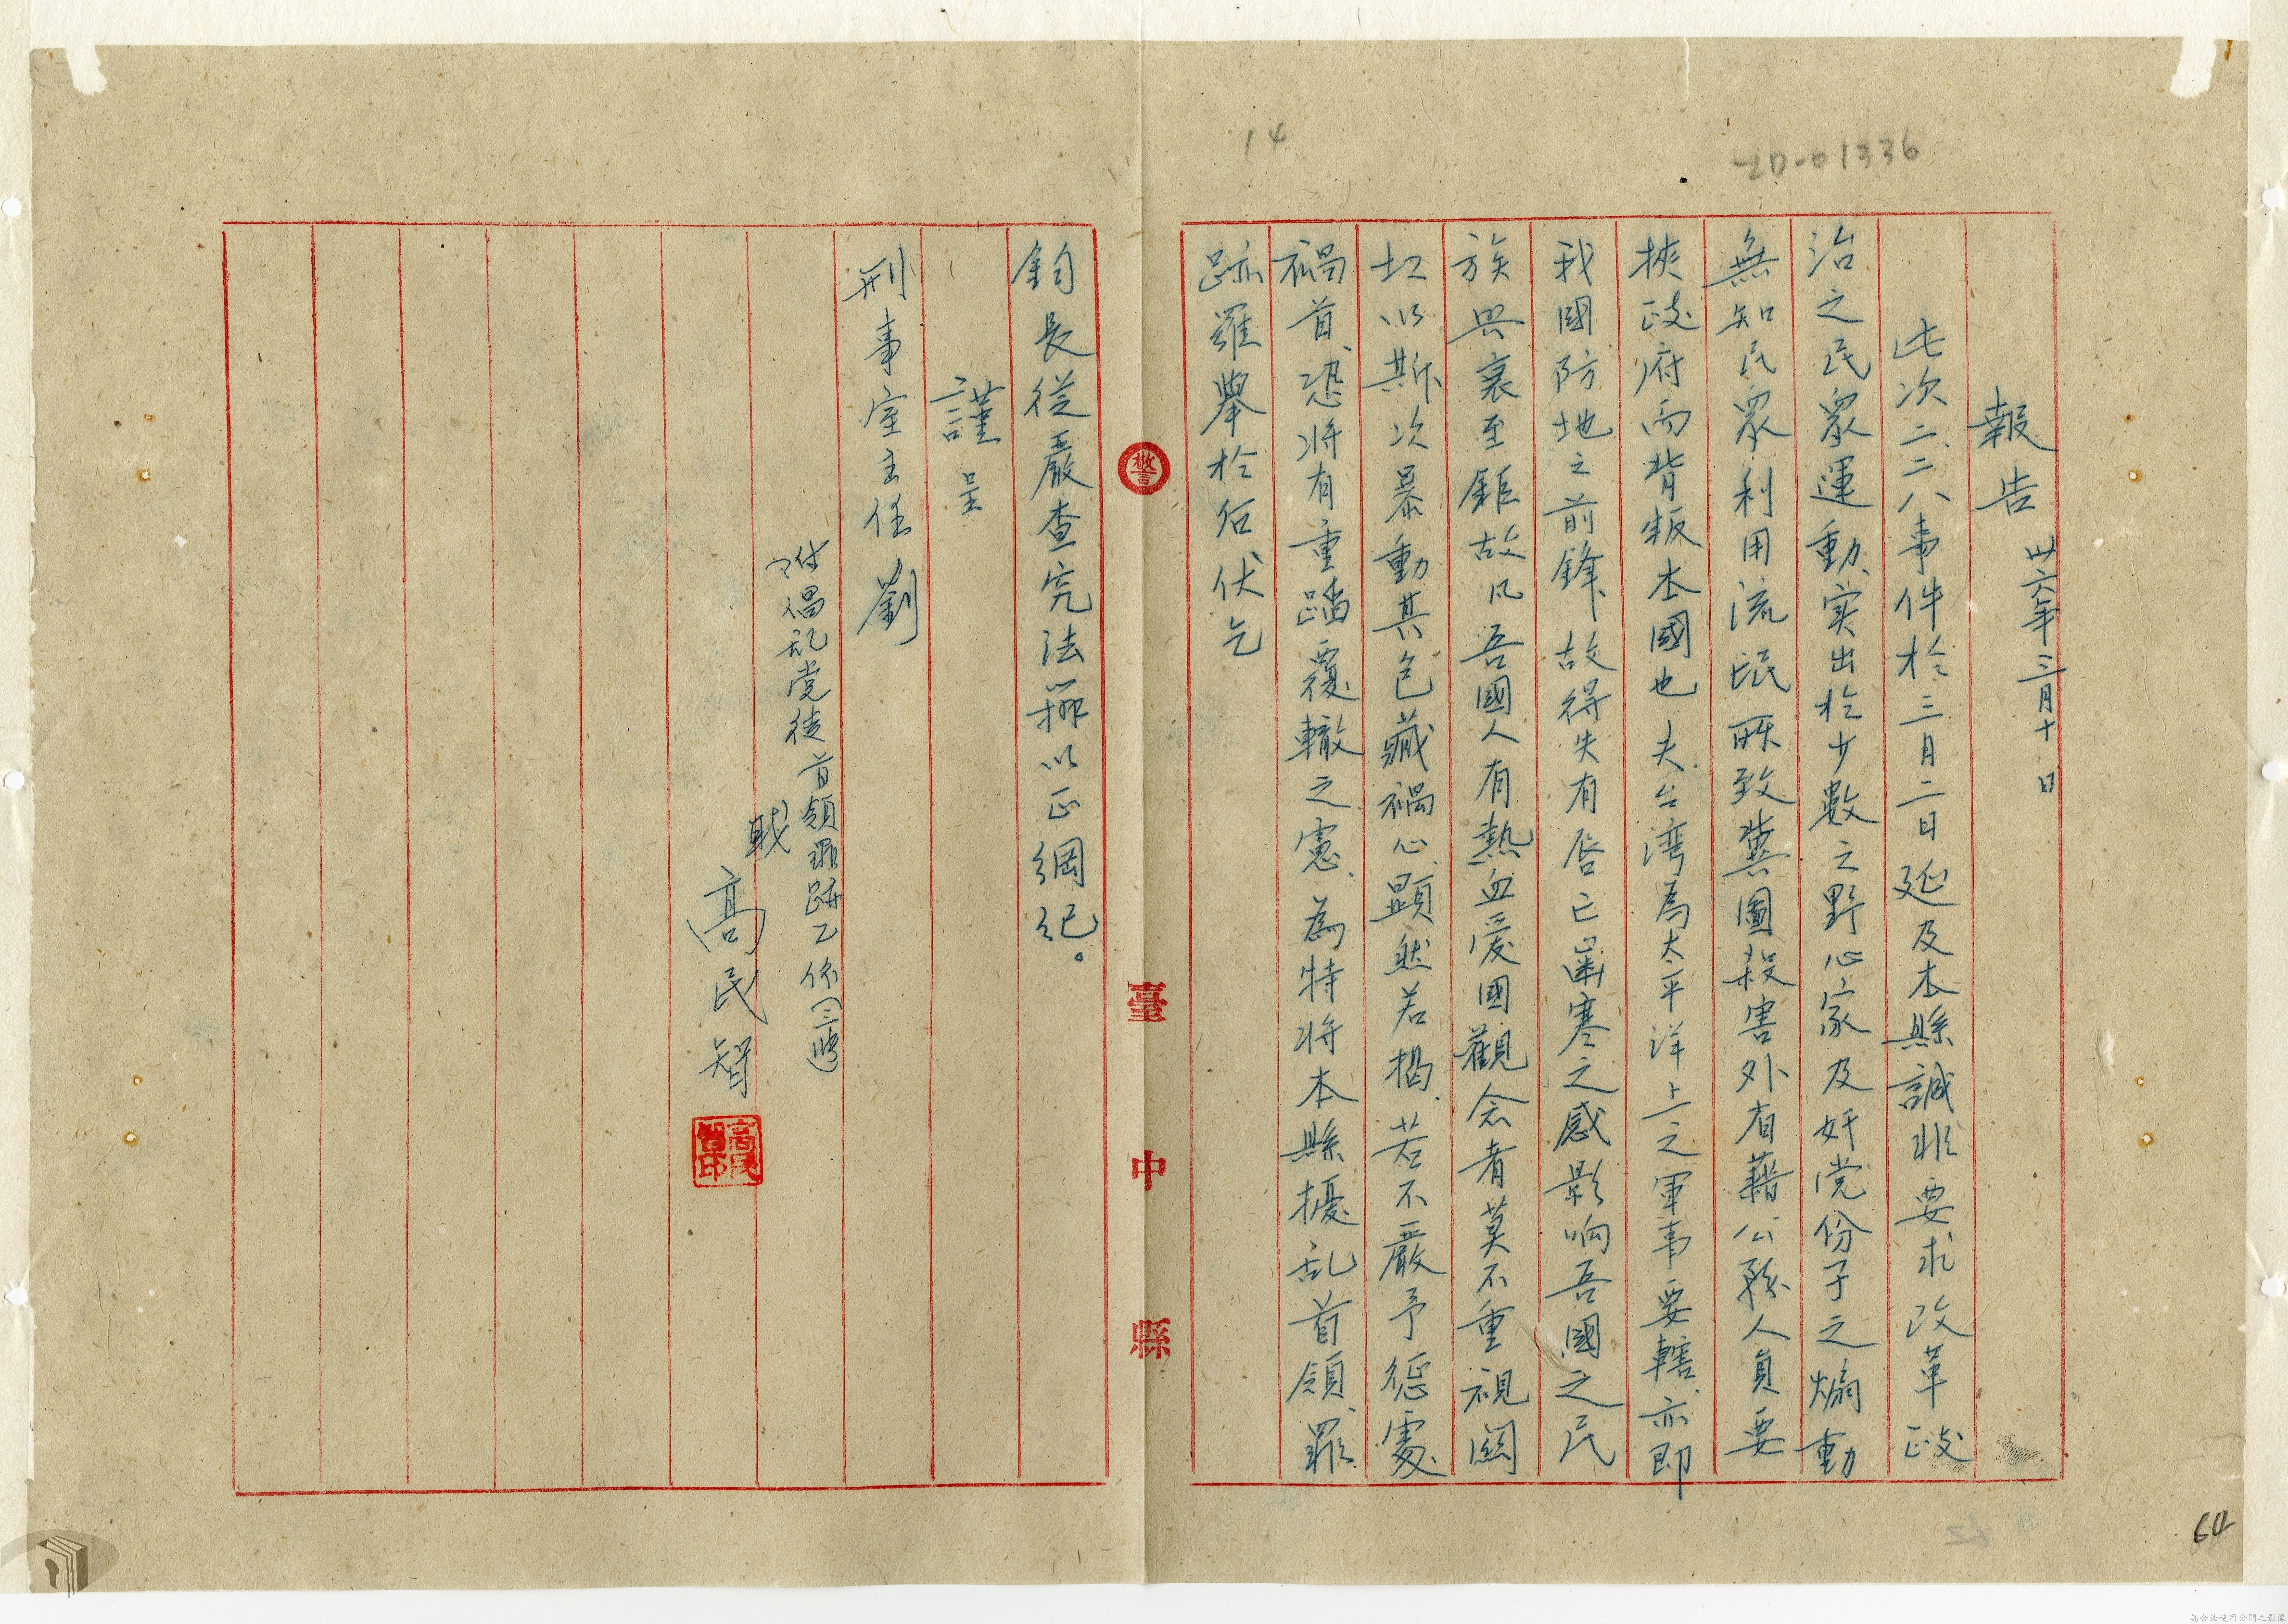 14
2D-01336
報告 卅六年三月十日
此次二、二八事件於三月二日延及本縣誠非要求改革政
治之民眾運動、实出於少數之野心家及奸党份子之煽動
無知民眾利用流氓所致冀圖殺害外省藉公務人員要
挾政府而背叛本國也夫台湾為太平洋上之軍事要轄、亦即
我國防地之前鋒、故得失有唇亡齒寒之感影响吾國之民
族興衰至鉅故凡吾國人有熱血愛國觀念者莫不重視關
切以斯次暴動其包藏禍心、顯然若揭、若不嚴予懲處
禍首、恐将有重蹈覆轍之慮、為特将本縣擾乱首領、罪
跡羅舉於后伏乞
警
臺中縣
鈞長從嚴查究法辦以正綱紀。
謹呈
刑事室主任劉
附禍乱党徒首領罪跡乙份(三張)
職
高民智
高民智印
64
請合法使用公開之影像